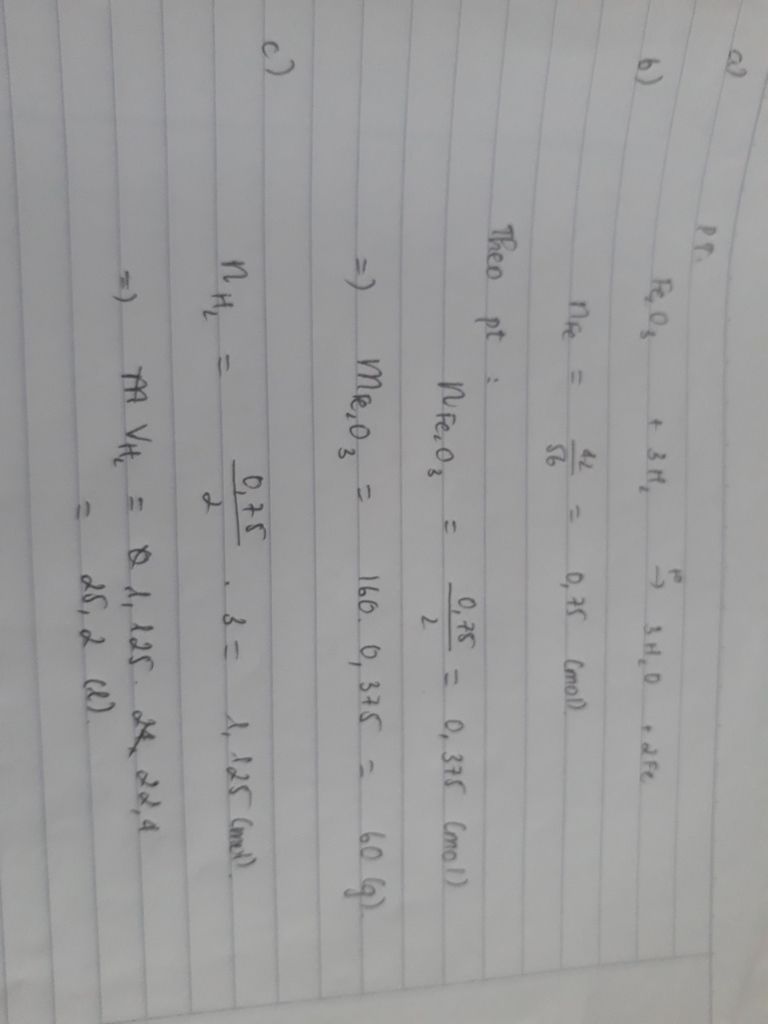 a)
PT:
b) Fe₂O₃ + 3H₂ →(t°) 3H₂O + 2Fe
nFe = 42/56 = 0,75 (mol)
Theo pt :
nFe₂O₃ = 0,75/2 = 0,375 (mol)
=) mFe₂O₃ = 160. 0,375 = 60 (g).
c)
nH₂ = 0,75/2 . 3 = 1,125 (mol).
=) VH₂ = 1,125. 22,4
= 25,2 (l).